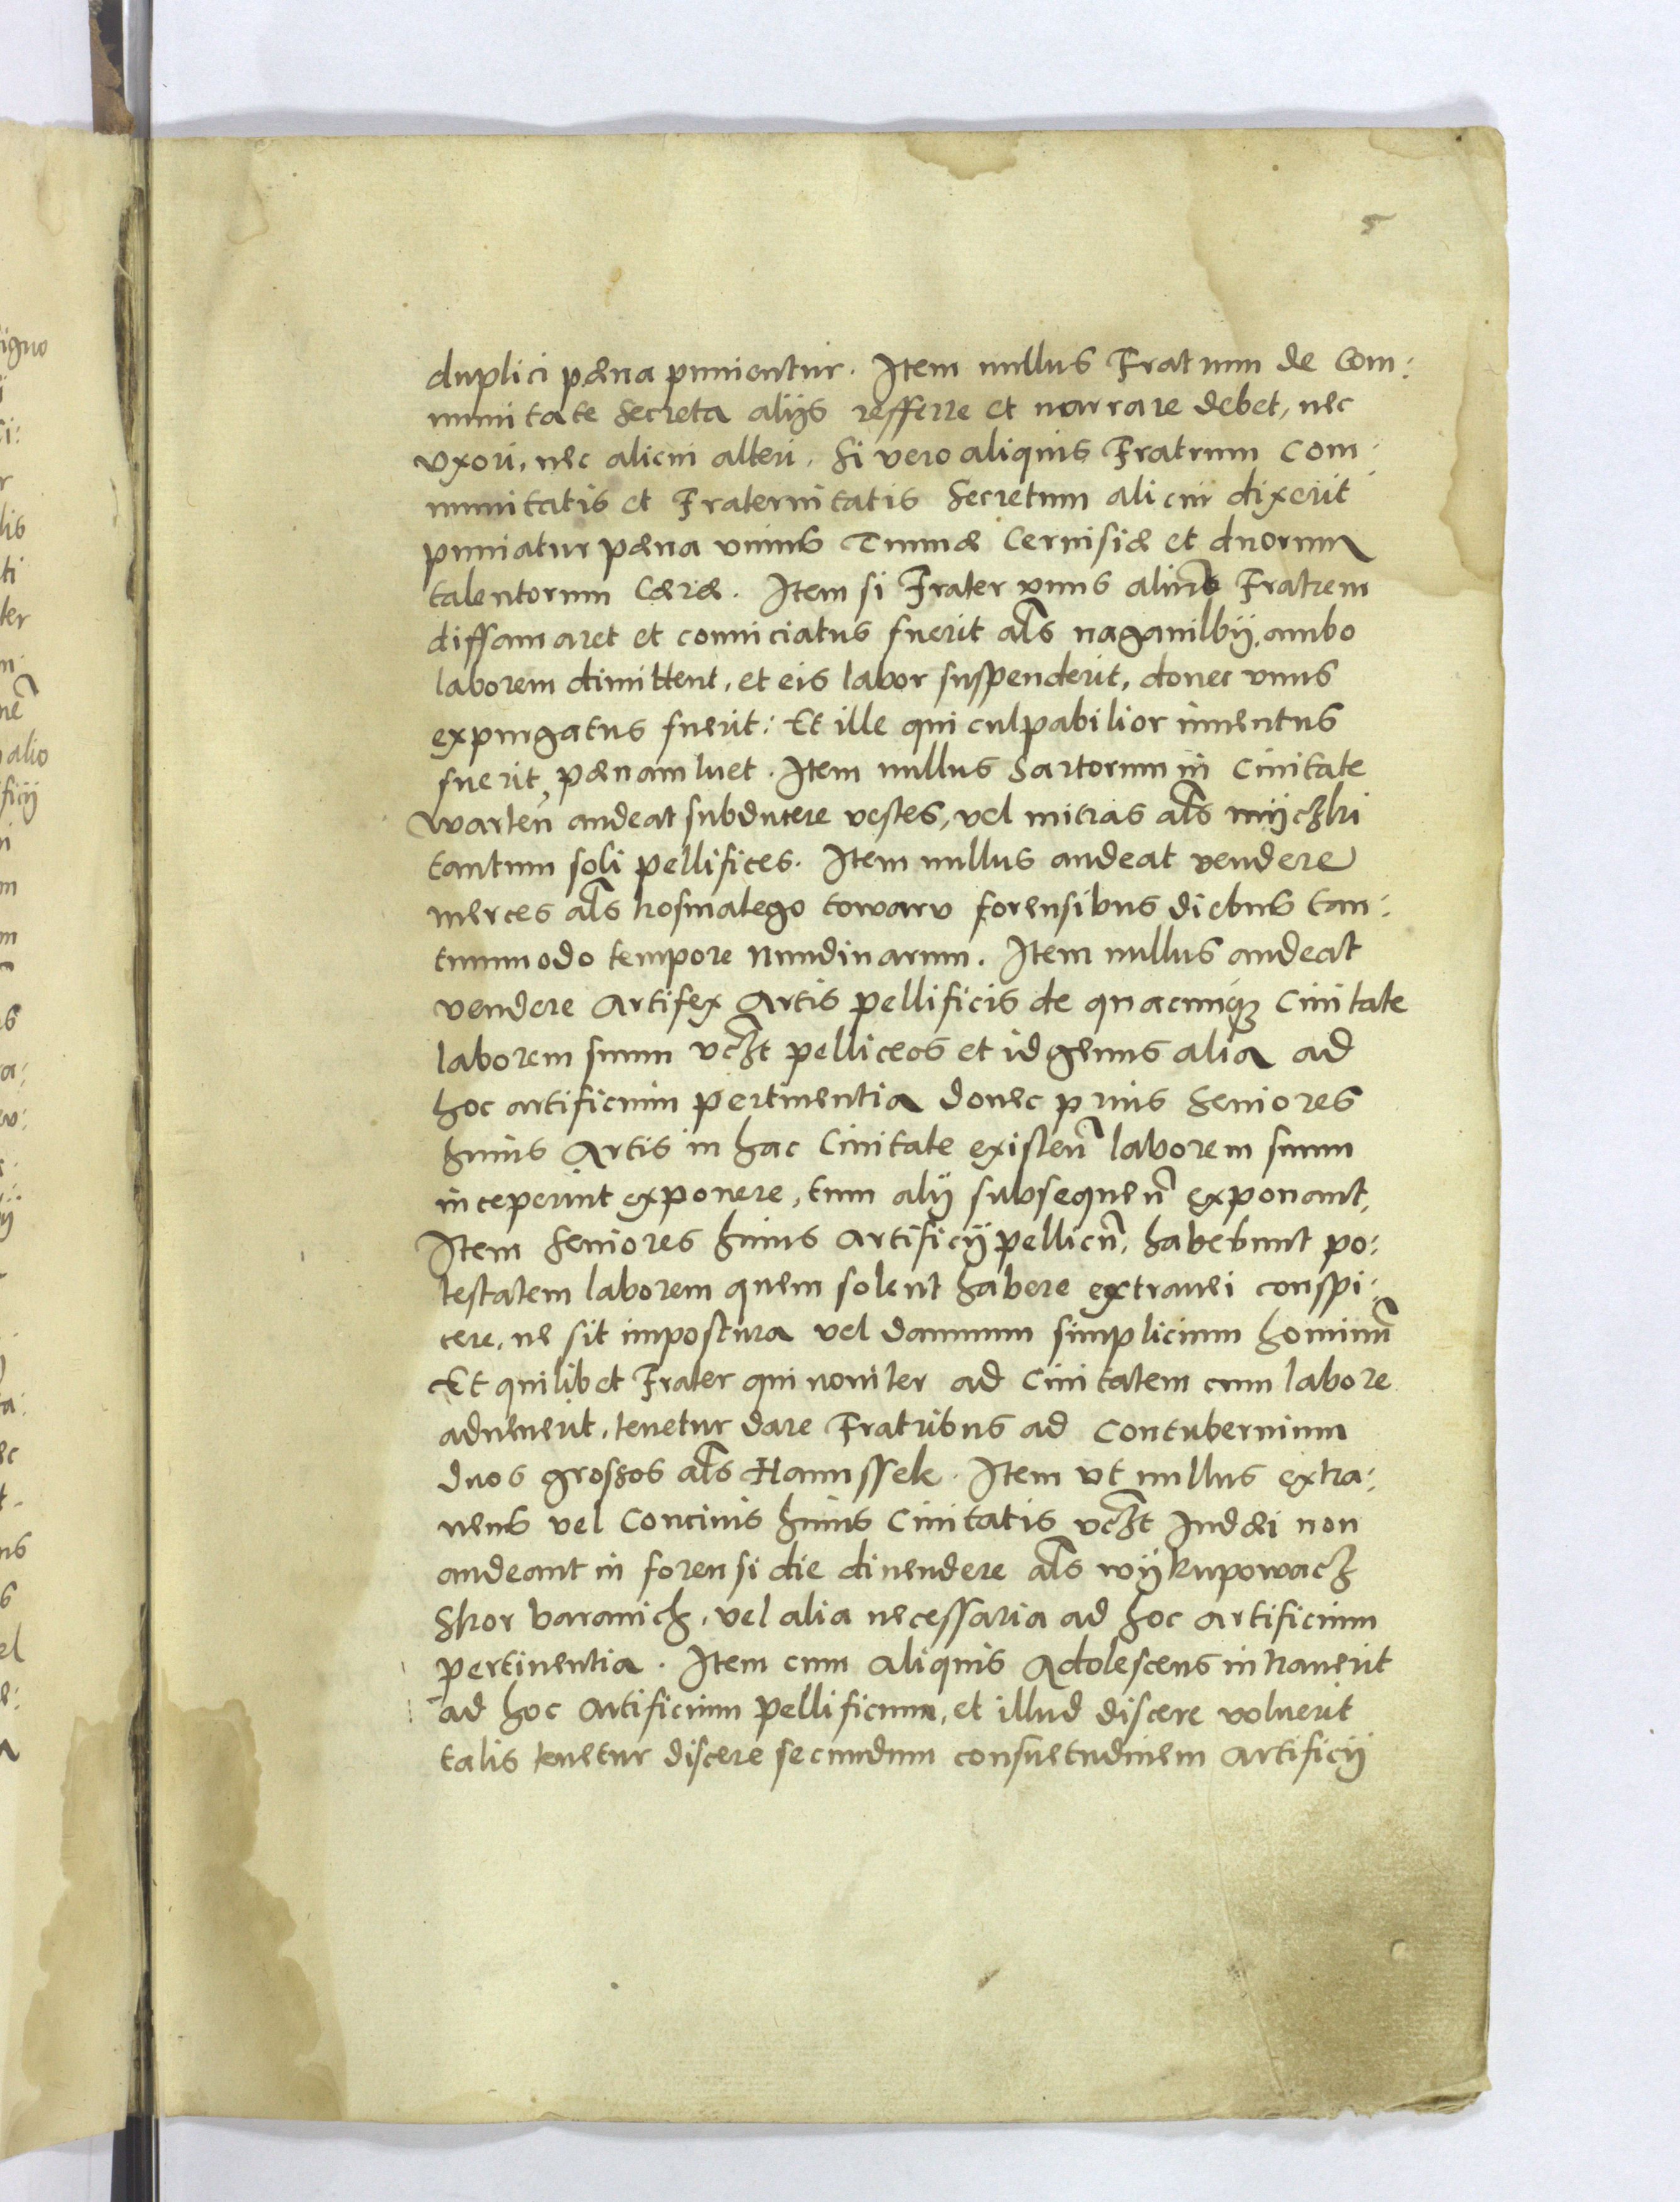 5
duplici pæna punientur. Item nullus Fratrum de Com:
munitate secreta alijs refferre et narrare debet, nec
vxori, nec alicui alteri. Si vero aliquis Fratrum Com:
munitatis et Fraternitatis secretum alicui dixerit
puniatur pæna vnius Tunnæ Ceruisiæ et duorum
talentorum Cæræ. Item si Frater vnus alium Fratrem
diffamaret et conuiciatus fuerit als naganilby, ambo
laborem dimittent, et eis labor suspenderit, donec vnus
expurgatus fuerit: Et ille qui culpabilior inuentus
fuerit, pænam luet. Item nullus Sartorum in Ciuitate
Warteñ audeat subducere vestes, vel mitras als mijczki
tantum soli pellifices. Item nullus audeat vendere
merces als kosmatego towaru forensibus diebus tan:
tummodo tempore Nundinarum. Item nullus audeat
vendere Artifex Artis pellificis de quacunqꝫ Ciuitate
laborem suum vczt pelliceos et id genus alia ad
hoc artificium pertinentia donec prius Seniores
huius Artis in hac Ciuitate existeñ laborem suum
inceperint exponere, tum alij subsequeñ exponant,
Item Seniores huius Artificij pellicñ, habebunt po:
testatem laborem quem solent habere extranei conspi:
cere, ne sit impostura vel damnum simplicium hominũ
Et quilibet Frater qui nouiter ad Ciuitatem cum labore
aduenerit, tenetur dare Fratribus ad Contubernium
duos grossos als Hanussek. Item vt nullus extra:
neus vel Conciuis huius Ciuitatis vczt Iudæi non
audeant in forensi die diuendere als wykupowacz
Skor baranich, vel alia necessaria ad hoc artificium
pertinentia. Item cum aliquis Adolescens intrauerit
ad hoc Artificium pellificum, et illud discere voluerit
talis tenetur discere secundum consuetudinem Artificij